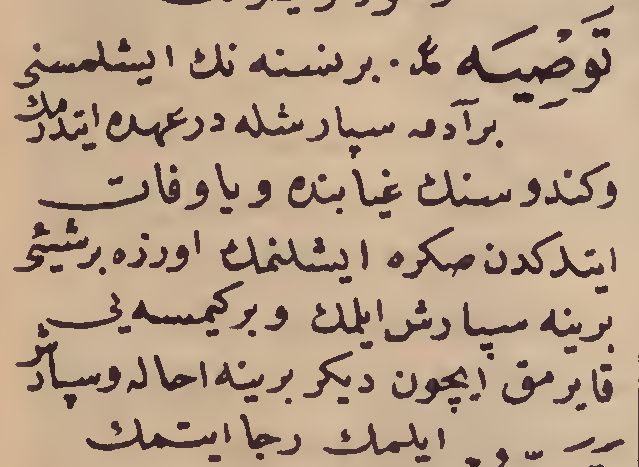 تَوْصِيَه عد. بر نسنه نك ايشلمسنى
بر آدمه سپارشله در عهده ايتدرمك
وكندوسنك غيابنده ويا وفات
ايتدكدن صكره ايشلنمك اوزره بر شيئى
برينه سپارش ايلمك و بر كيمسه يى
قايرمق ايچون ديكر برينه احاله وسپارش
ايلمك رجا ايتمك